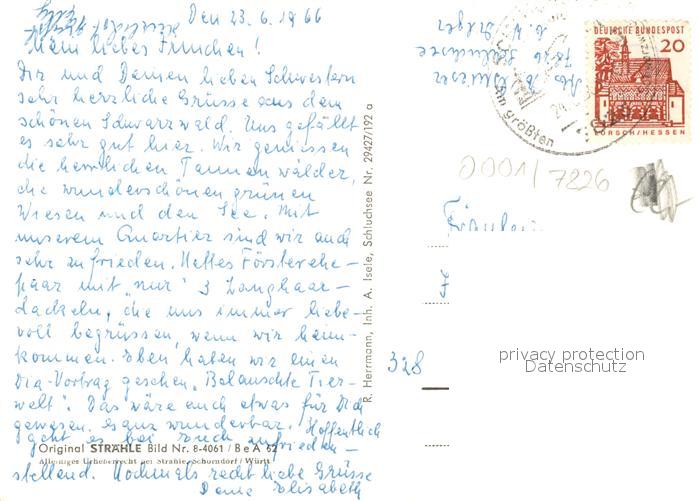 Den 23.6.1966
Mein liebes Finnchen!
Dir und Deinen lieben Schwestern
sehr herzliche Grüsse aus dem
schönen Schwarzwald. Uns gefällt
es sehr gut hier. Wir geniessen
die herrlichen Tannenwälder,
die wunderschönen grünen
Wiesen und den See. Mit
unserem Quartier sind wir auch
sehr zufrieden. Nettes Försterehe-
paar mit "nur" 3 Langhaar-
dackeln, die uns immer liebe-
voll begrüssen, wenn wir heim-
kommen. Eben haben wir einen
Dia-Vortrag gesehen, "Belauschte Tier-
welt". Das wäre auch etwas für Dich
gewesen. Es war wunderbar. Hoffentlich
geht es bei Euch zufrieden-
stellend. Nochmals recht liebe Grüsse
Deine Elisabeth
Original STRÄHLE Bild Nr. 8-4061 / B e A 62
Alleiniges Urheberrecht bei Strähle, Schorndorf / Württ.
R. Herrmann, Inh. A. Isele, Schluchsee Nr. 29427/192 a
7826 Schluchsee
DEUTSCHE BUNDESPOST
20
LORSCH/HESSEN
am größten
0001/7826
Fräulein
328
privacy protection
Datenschutz